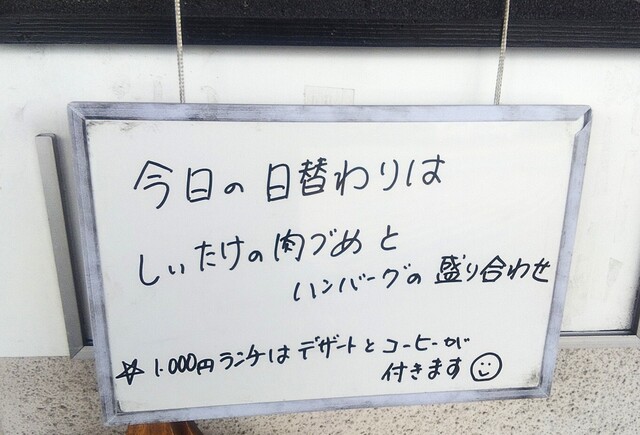 今日の日替わりは
しいたけの肉づめと
ハンバーグの盛り合わせ
☆1.000円ランチはデザートとコーヒーが
付きます☺